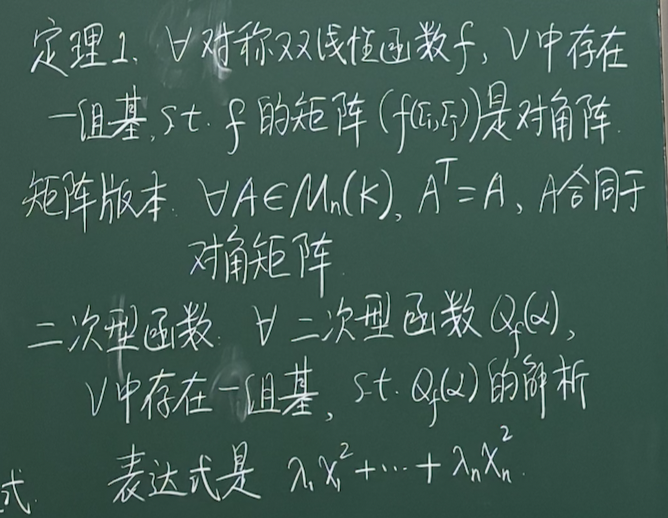 定理1. ∀对称双线性函数f, V中存在
一组基, s.t. f的矩阵(f(ξi,ξj))是对角阵.
矩阵版本. ∀A∈Mn(K), A^T=A, A合同于
对角矩阵.
二次型函数. ∀二次型函数Qf(α),
V中存在一组基, s.t. Qf(α)的解析
式. 表达式是 λ₁x₁²+⋯+λnxn².